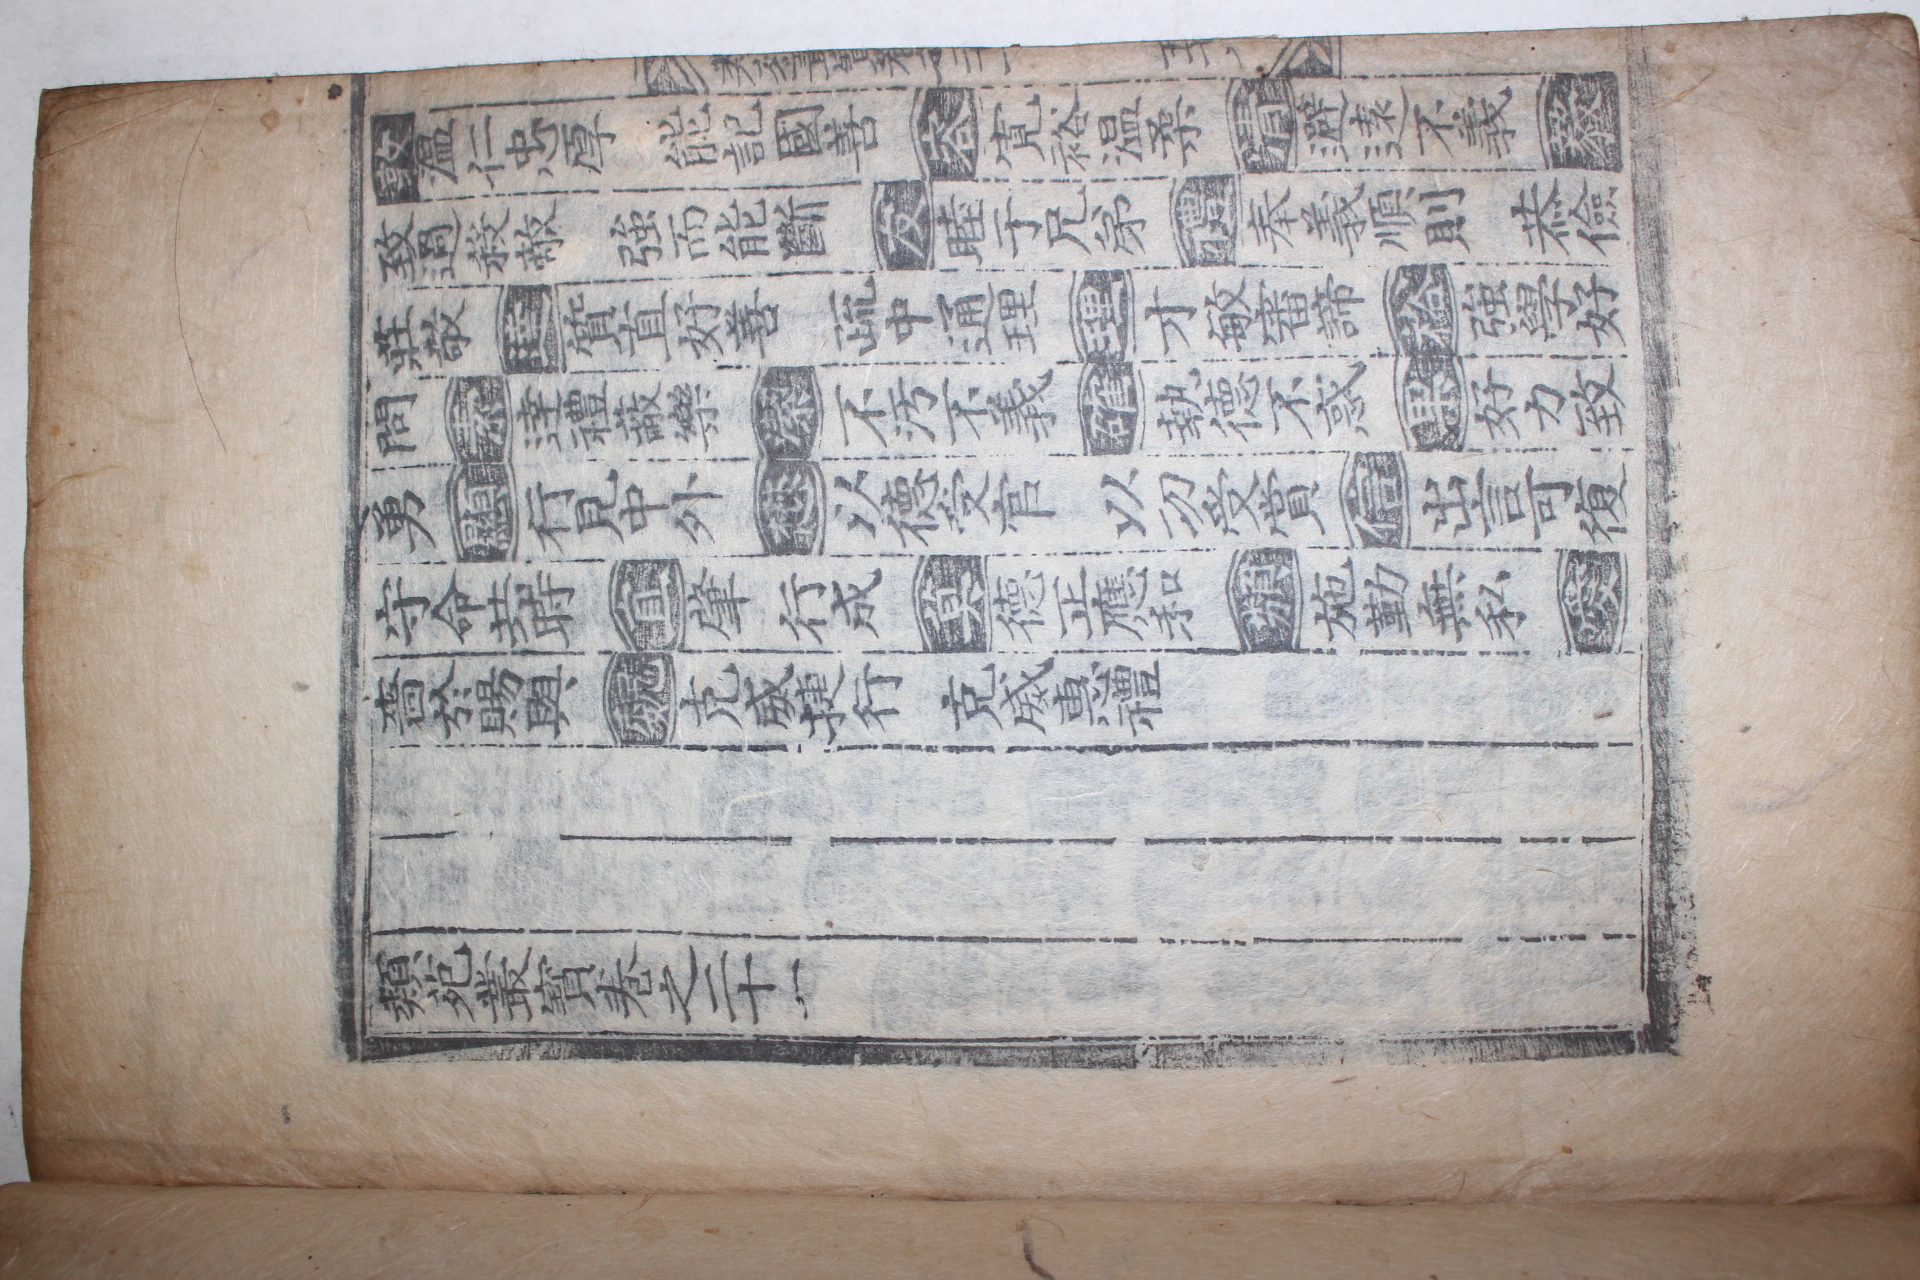 敦温仁忠厚　能記國善　容寛裕温柔　清避遠不義
致過殺敵　強而能斷　友睦于兄弟　禮奉義順則　恭儉
莊敬　質直好善　疏中通理　理才敏審諦　裕強學好
問　素達禮蔽樂　潔不汚不義　確執德不惑　果好力致
勇　顯行見中外　懋以德受官　以功受賞　信出言可復
守命共時　宜肇　行成　莫德正應和　類施勤無私　愛
嗇於賜與　魏克威捷行　克威惠禮
類苑叢寶卷之二十一